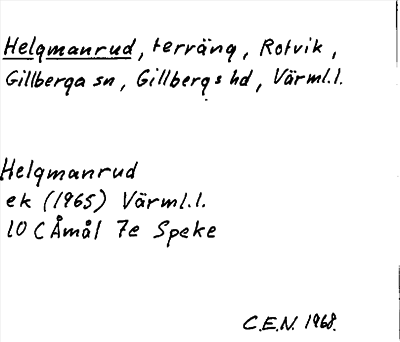 Helgmanrud, terräng, Rotvik,
Gillberga sn, Gillbergs hd, Värml.l.
Helgmanrud
ek (1965) Värml.l.
10 C Åmål 7e Speke
C.E.N. 1968.